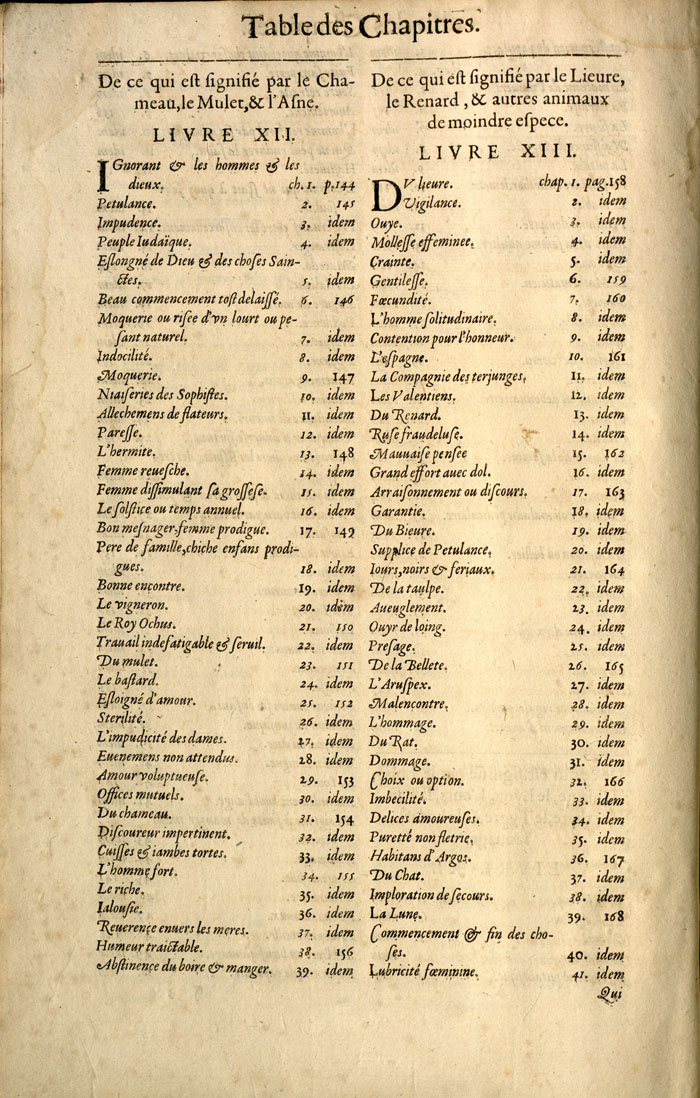 Table des Chapitres.
De ce qui eſt ſignifié par le Cha-
meau, le Mulet, & l'Aſne.
LIVRE XII.
IGnorant & les hommes & les
dieux. ch. 1. p. 144
Petulance. 2. 145
Impudence. 3. idem
Peuple Iudaïque. 4. idem
Eſlongné de Dieu & des choſes Sain-
ctes. 5. idem
Beau commencement toſt delaiſſé. 6. 146
Moquerie ou riſee d'vn lourt ou pe-
ſant naturel. 7. idem
Indocilité. 8. idem
Moquerie. 9. 147
Niaiſeries des Sophiſtes. 10. idem
Allechemens de flateurs. 11. idem
Pareſſe. 12. idem
L'hermite. 13. 148
Femme reueſche. 14. idem
Femme diſſimulant ſa groſſeſe. 15. idem
Le ſolſtice ou temps annuel. 16. idem
Bon meſnager, femme prodigue. 17. 149
Pere de famille, chiche enfans prodi-
gues. 18. idem
Bonne encontre. 19. idem
Le vigneron. 20. idem
Le Roy Ochus. 21. 150
Trauail indefatigable & ſeruil. 22. idem
Du mulet. 23. 151
Le baſtard. 24. idem
Eſloigné d'amour. 25. 152
Sterilité. 26. idem
L'impudicité des dames. 27. idem
Euenemens non attendus. 28. idem
Amour voluptueuſe. 29. 153
Offices mutuels. 30. idem
Du chameau. 31. 154
Diſcoureur impertinent. 32. idem
Cuiſſes & iambes tortes. 33. idem
L'homme fort. 34. 155
Le riche. 35. idem
Ialouſie. 36. idem
Reuerence enuers les meres. 37. idem
Humeur traictable. 38. 156
Abſtinence du boire & manger. 39. idem
De ce qui eſt ſignifié par le Lieure,
le Renard, & autres animaux
de moindre eſpece.
LIVRE XIII.
DV lieure. chap. 1. pag. 158
Vigilance. 2. idem
Ouye. 3. idem
Molleſſe effeminee. 4. idem
Crainte. 5. idem
Gentileſſe. 6. 159
Fœcundité. 7. 160
L'homme ſolitudinaire. 8. idem
Contention pour l'honneur. 9. idem
L'eſpagne. 10. 161
La Compagnie des terjunges. 11. idem
Les Valentiens. 12. idem
Du Renard. 13. idem
Ruſe fraudeluſe. 14. idem
Mauuaiſe penſee 15. 162
Grand effort auec dol. 16. idem
Arraiſonnement ou diſcours. 17. 163
Garantie. 18. idem
Du Bieure. 19. idem
Supplice de Petulance. 20. idem
Iours, noirs & feriaux. 21. 164
De la taulpe. 22. idem
Aueuglement. 23. idem
Ouyr de loing. 24. idem
Preſage. 25. idem
De la Bellete. 26. 165
L'Aruſpex. 27. idem
Malencontre. 28. idem
L'hommage. 29. idem
Du Rat. 30. idem
Dommage. 31. idem
Choix ou option. 32. 166
Imbecilité. 33. idem
Delices amoureuſes. 34. idem
Puretté non fletrie. 35. idem
Habitans d'Argos. 36. 167
Du Chat. 37. idem
Imploration de ſecours. 38. idem
La Lune. 39. 168
Commencement & fin des cho-
ſes. 40. idem
Lubricité fœminine. 41. idem
Qui